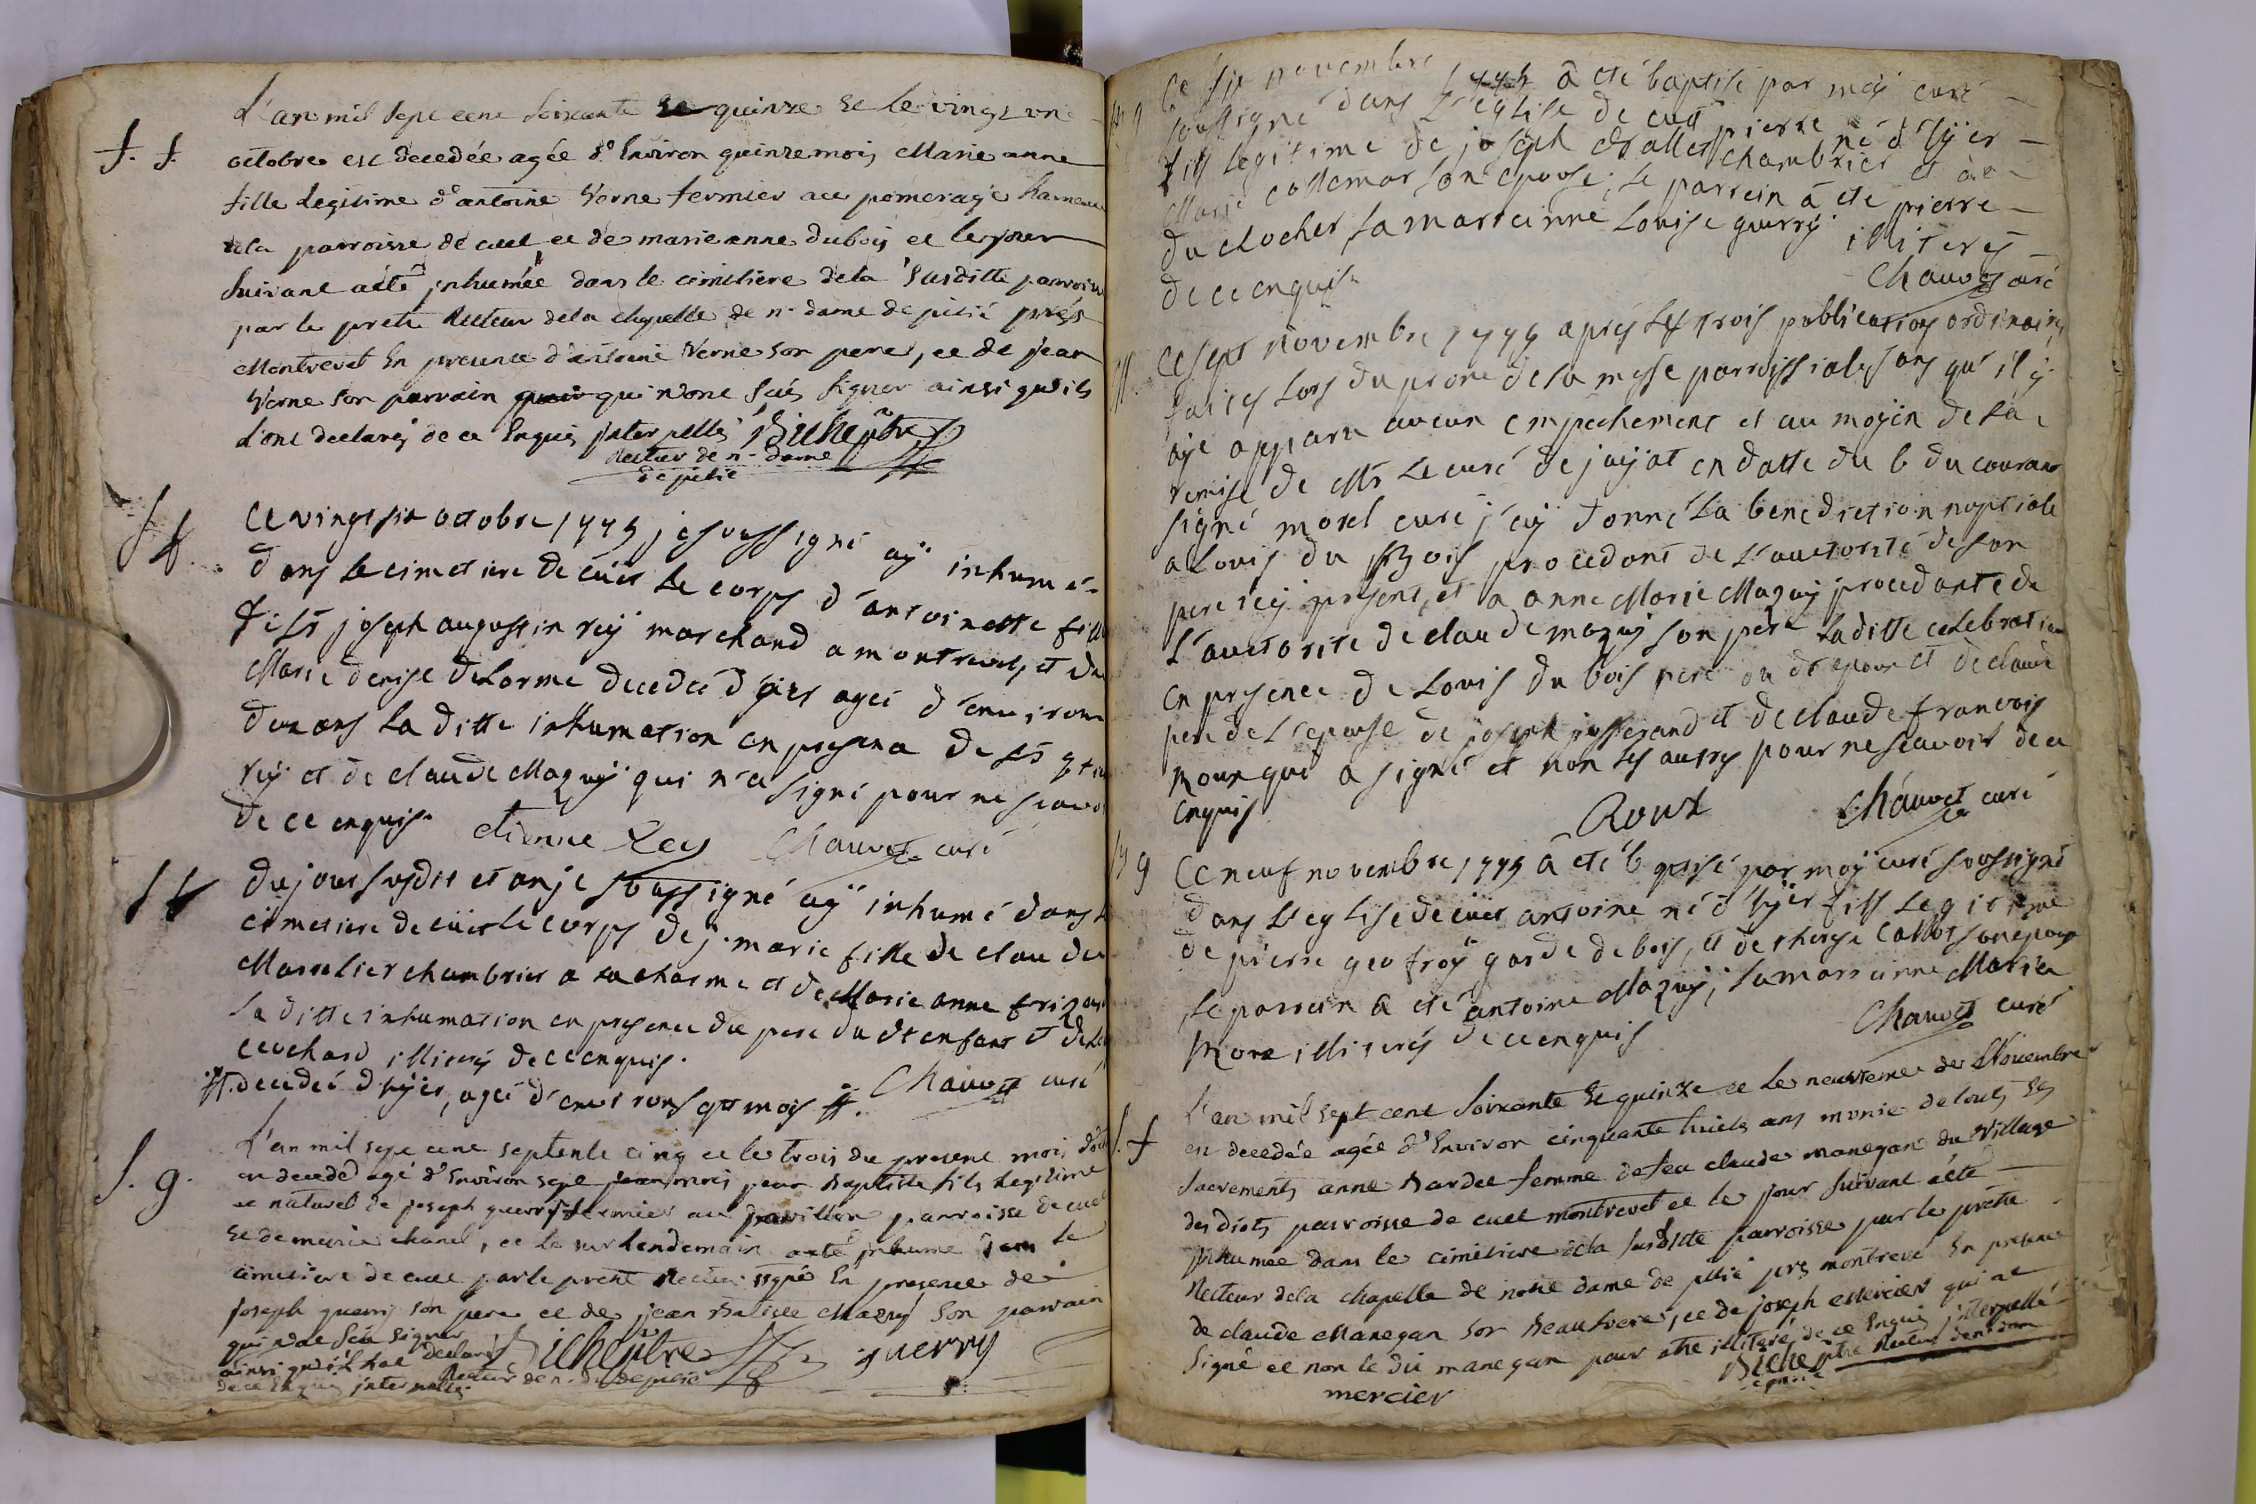 L'an mil sept cent soixante et quinze et le vingt un
f. f. octobre est decedée agée d'Environ quinze mois Marie anne
fille Legitime d'antoine Verne fermier au pomerage hameau
dela parroisse de cuet et de marie anne dubois et le jour
suivant a été inhumée dans le cimetiere dela susditte parroisse
par le pretre Recteur dela chapelle de n. dame de pitié près
Montrevel En presence d'antoine Verne son pere, et de jean
Verne son parrain qui n'ont sçus signer ainsi qu'ils
L'ont declarés de ce Enquis interpellés Bichepbre
Recteur de n. dame
de pitié
S f Ce vingt six octobre 1775 je soussigné aÿ inhumé
dans Le cimetiere de cüet Le corps d'antoinette fille
de sr joseph augustin reÿ marchand a montrevel, et de
Marie denise deLorme decedée d'hier agée d'environ
deux ans La ditte inhumation en presence de sr
reÿ et de claude Mazuÿ qui n'a signé pour ne scavoir
de ce enquis. etienne Rey Chauvet curé
S f Du jour susdit et an je soussigné aÿ inhumé dans Le
cimetiere de cüet le corps de j. marie fille de claude
chambrier a La charme et de Marie anne
La ditte inhumation en presence du pere du dt enfant et de
illiterés de ce enquis.
#. decedée d'hÿer, agée d'environ sept mois #. Chauvet curé
S. g. L'an mil sept cent septente cinq et le trois du present mois
est decedé agé d'Environ sept mois jean Baptiste fils Legitime
et naturel de joseph guerry fermier au pavillon parroisse de cuet
et de marie chanel, et le sur lendemain a été inhumé dans le
cimetiere de cuet par le pretre Recteur signé En presence de
joseph guerry son pere et de jean Batiste Mazuy son parrain
qui n'at sçu signer
ainsi qu'il l'hat declaré Bichepbre guerry
de ce Enquis interpellé. Recteur de n. d. de pitié
Ce six novembre 1775 â eté baptisé par moÿ curé
soussigné dans L'église de cuet pierre né d'hÿer
fils legitime de joseph chambrier et de
Marie son epouse; Le parrein â eté pierre
du clocher La marreinne Louise guerrÿ illiterés
de ce enquis Chauvet curé
Ce sept novembre 1775 après Les trois publications ordinaires
faites Lors du prone de La messe parroissiale sans qu'il ÿ
aÿe apparu aucun empechement et au moÿen de La
remise de Mr Le curé de jaÿat en datte du 6 du courant
signé morel curé j'aÿ donné La benediction nuptiale
a Louis du Bois procedant de L'auctorité de son
pere icÿ present, et a anne Marie Mazuÿ procedante de
L'auctorité de claude mazuÿ son père La ditte celebration
en presence de Louis du bois pere du dt epoux et de claude
pere de L'epouse de joseph josserand et de claude francois
Roux qui a signé et non Les autres pour ne scavoir de ce
enquis. Roux Chauvet curé
g Ce neuf novembre 1775 â eté bptisé par moÿ curé soussigné
dans L'eglise de cüet antoine né d'hÿer fils Legitime
de pierre geofroÿ garde de bois, et de therese son epouse
Le parrein â eté antoine Mazuÿ, La marreinne Marie
More illiterés de ce enquis Chauvet curé
L'an mil sept cent soixante et quinze et Le neuvieme de Novembre
S. f est decedée agée d'Environ cinquante huits ans munie de touts les
Sacrements anne Bardet femme de feu claude manegan du village
des diots parroisse de cuet montrevel et le jour suivant a été
inhumée dans le cimetiere dela susditte parroisse par le pretre
Recteur dela chapelle de notre dame de pitié près montrevel En presence
de claude Manegan son Beaufrere, et de joseph Mercier qui at
signé et non le dit manegan pour etre illiteré de ce Enquis interpellé
mercier Bichepbre Recteur de n. dame
de pitié